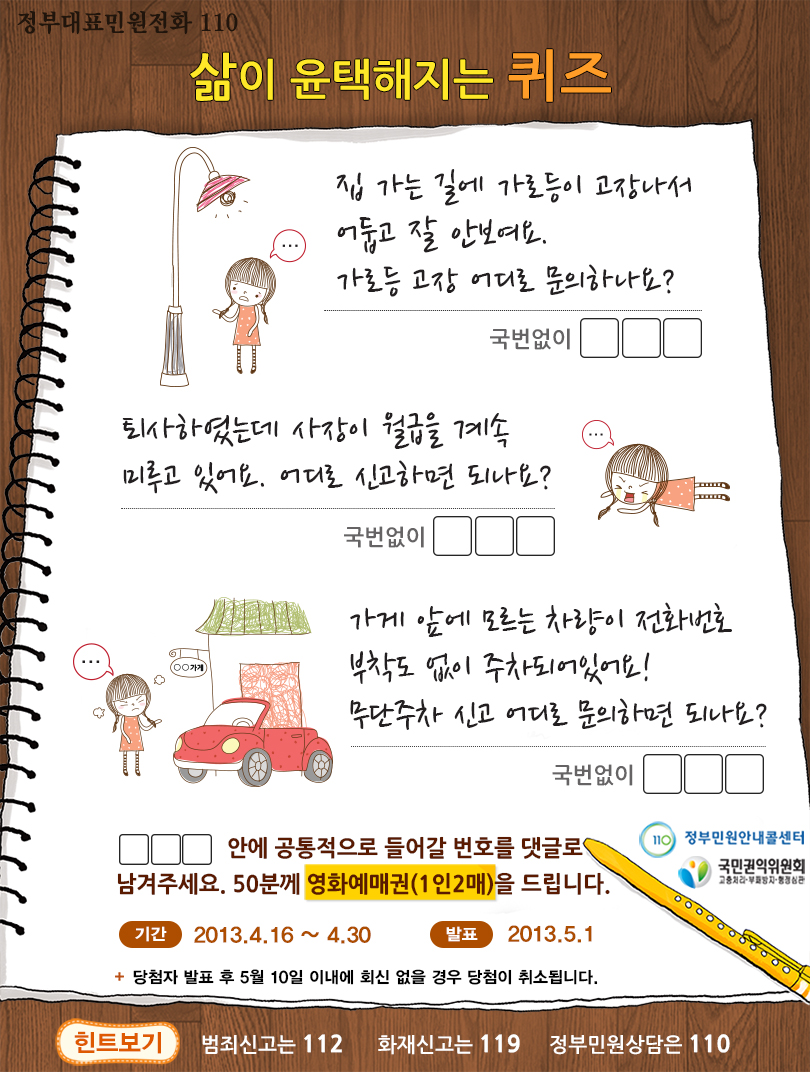 정부대표민원전화 110
삶이 윤택해지는 퀴즈
집 가는 길에 가로등이 고장나서
어둡고 잘 안보여요.
가로등 고장 어디로 문의하나요?
...
국번없이
퇴사하였는데 사장이 월급을 계속
미루고 있어요. 어디로 신고하면 되나요?
...
국번없이
가게 앞에 모르는 차량이 전화번호
부착도 없이 주차되어있어요!
무단주차 신고 어디로 문의하면 되나요?
...
○○가게
국번없이
안에 공통적으로 들어갈 번호를 댓글로
남겨주세요. 50분께 영화예매권(1인2매)을 드립니다.
110 정부민원안내콜센터
국민권익위원회
고충처리·부패방지·행정심판
기간 2013.4.16 ~ 4.30 발표 2013.5.1
+ 당첨자 발표 후 5월 10일 이내에 회신 없을 경우 당첨이 취소됩니다.
힌트보기 범죄신고는 112 화재신고는 119 정부민원상담은 110